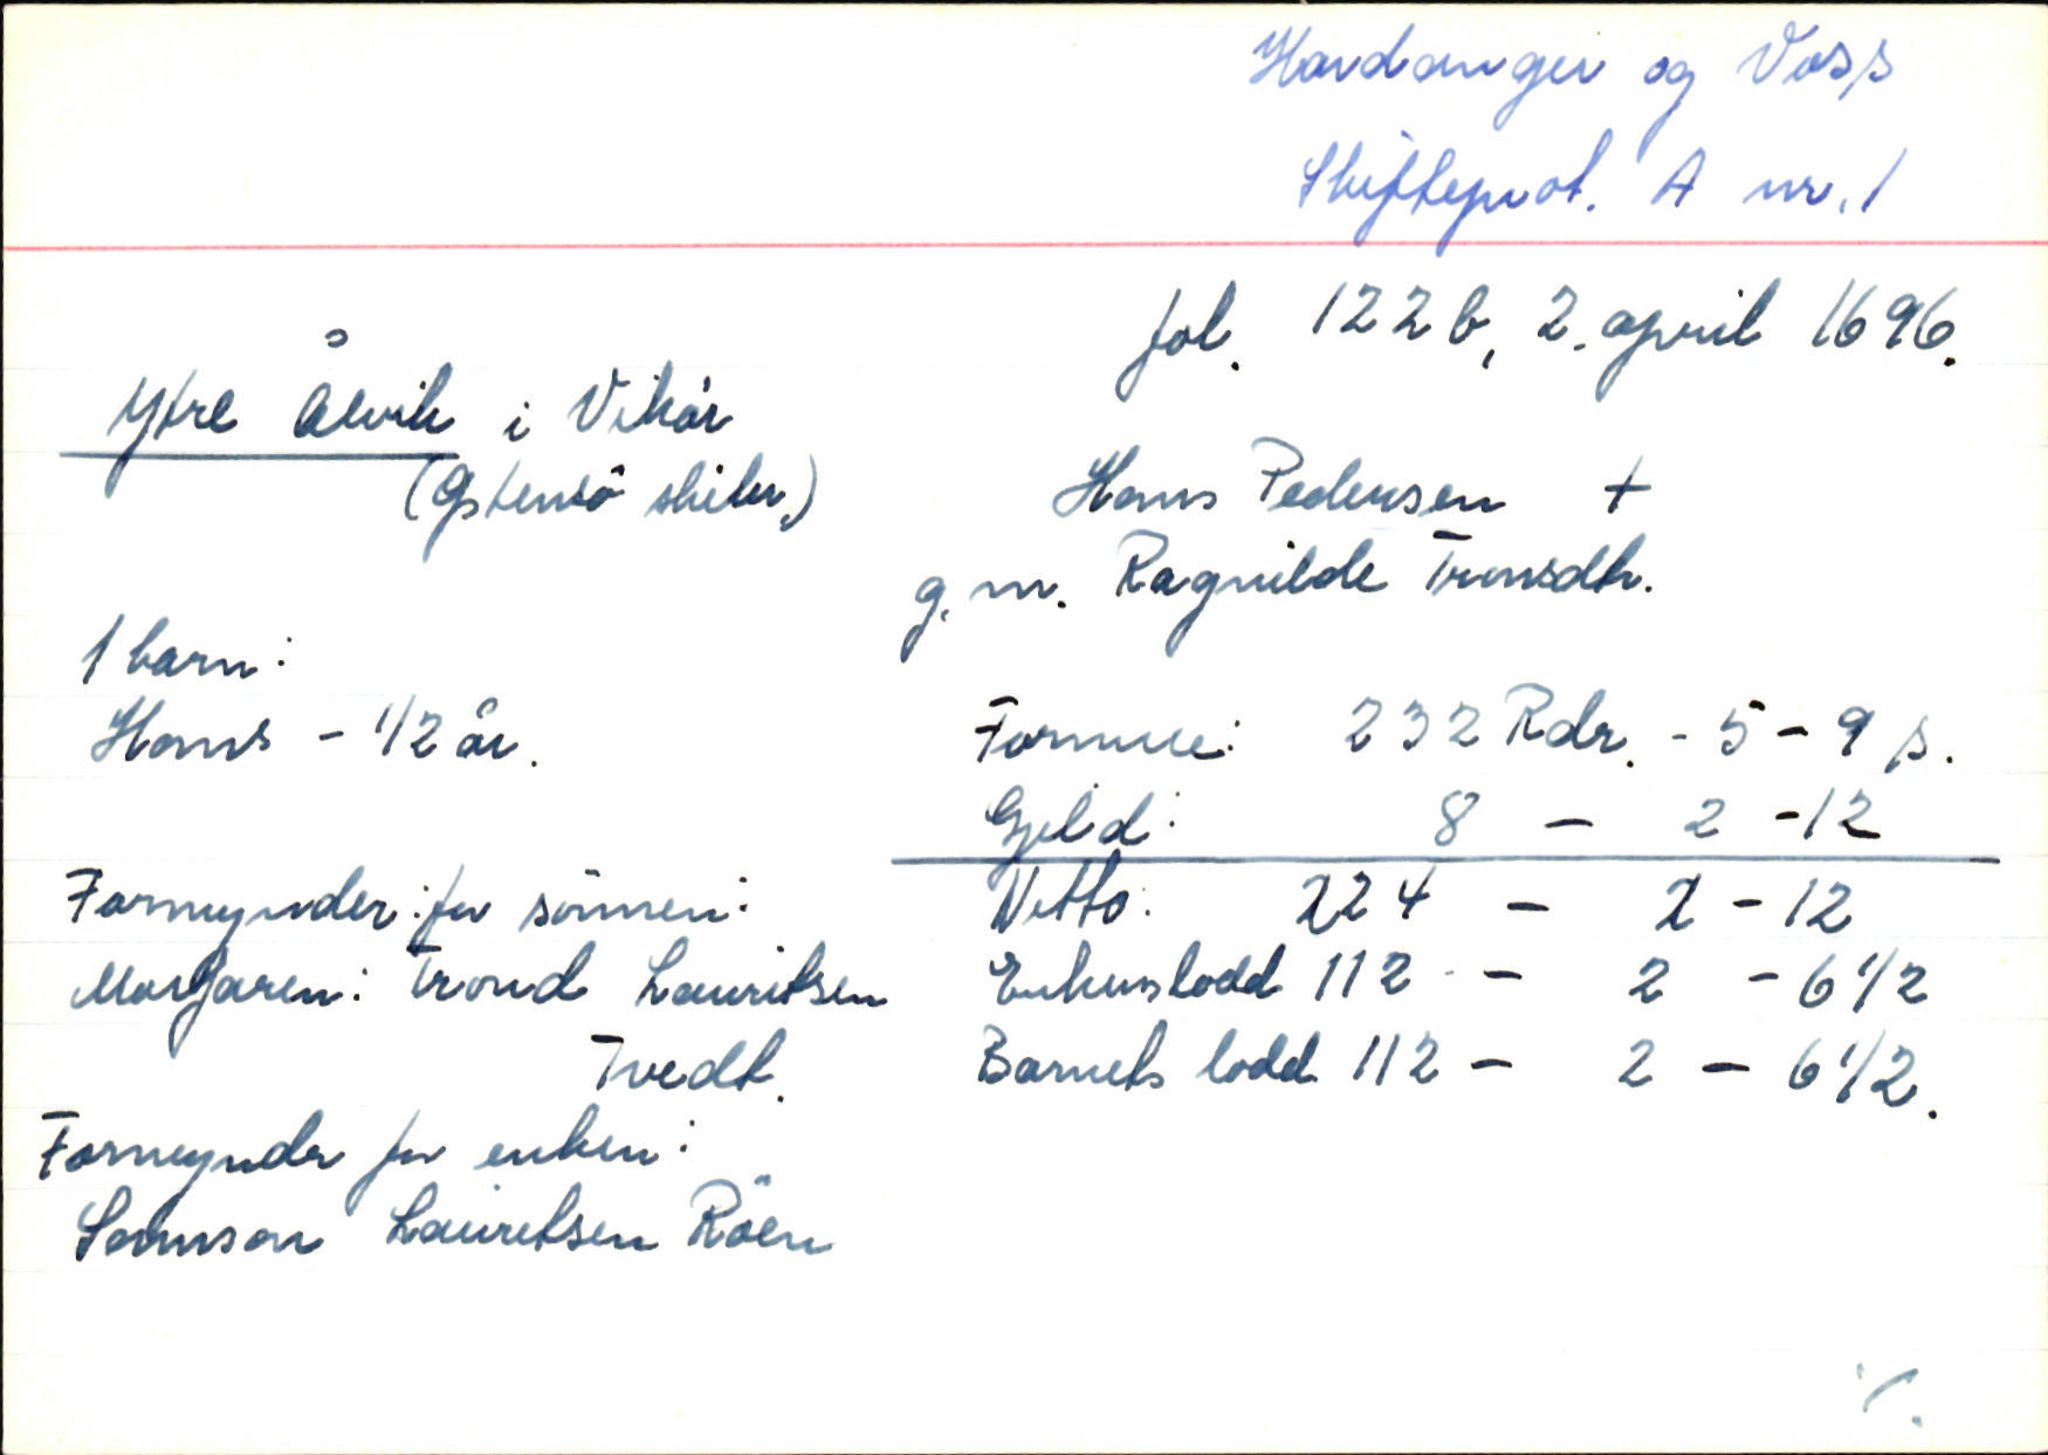 Hardanger og Voss
Skifteprot. A nr. 1
fol. 122 b, 2. april 1696.
Ytre Ålvik i Vikör
(Östensö skibr.)
Hans Pedersen +
g. m. Ragnilde Tronsdtr.
1 barn:
Hans - 1/2 år.
Formue: 232 Rdr. - 5 - 9 s.
Gjeld: 8 - 2 - 12
Netto: 224 - 2 - 12
Enkens lodd 112 - 2 - 6 1/2
Barnets lodd 112 - 2 - 6 1/2.
Formynder for sönnen:
Morfaren: Trond Lauritsen
Tvedt.
Formynder for enken:
Samson Lauritsen Röen